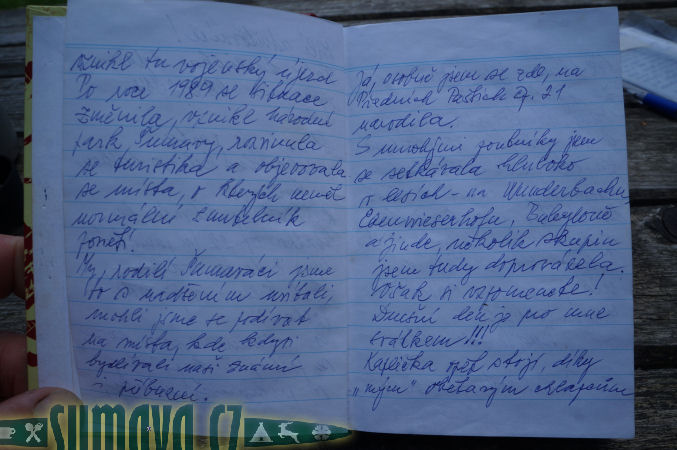 vznikl tu vojenský újezd
Po roce 1989 se situace
změnila, vznikl národní
park Šumavy, rozvinula
se turistika a objevovala
se místa, o kterých neměl
normální smrtelník
ponětí.
My, rodilí Šumaváci jsme
to s nadšením uvítali,
mohli jsme se podívat
na místa, kde kdysi
bydleli naši známí
i příbuzní.
Já, osobně jsem se zde, na
Předních Paštích čp. 21
narodila.
S mnohými poutníky jsem
se setkávala hluboko
v lesích - na Wunderbachu,
Ebenwieserhofu, Babyloně
a jinde, několik skupin
jsem tudy doprovázela.
Však si vzpomenete!
Dnešní den je pro mne
svátkem!!!
Kaplička opět stojí, díky
„mým" obětavým chlapcům
sumava.cz